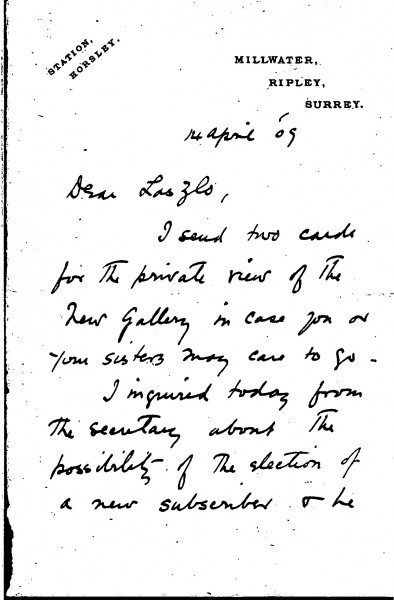 STATION,
HORSLEY.
MILLWATER,
RIPLEY,
SURREY.
14 April '09
Dear Laszlo,
I send two cards
for the private view of the
New Gallery in case you or
your sisters may care to go -
I inquired today from
the secretary about the
possibility of the election of
a new subscriber & he